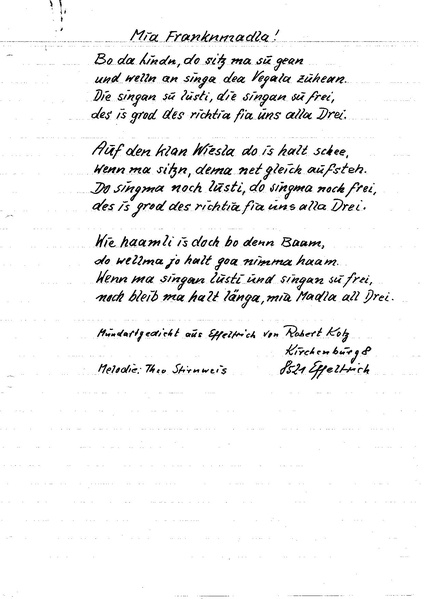 Mia Franknmadla!
Bo da hindn, do sitz ma sü gean
und welln an singa dea Vegala zühean.
Die singan sü lüsti, die singan sü frei,
des is grod des richtia fia üns alla Drei.
Auf den klan Wiesla do is halt schee,
wenn ma sitzn, dema net gleich aufsteh.
Do singma noch lüsti, do singma noch frei,
des is grod des richtia fia üns alla Drei.
Wie haamli is doch bo denn Baam,
do wellma jo halt goa nimma haam.
Wenn ma singan lüsti ünd singan sü frei,
noch bleib ma halt länga, mia Madla all Drei.
Mundartgedicht aus Effeltrich von Robert Kotz
Kirchenburg 8
Melodie: Theo Stirnweis 8521 Effeltrich